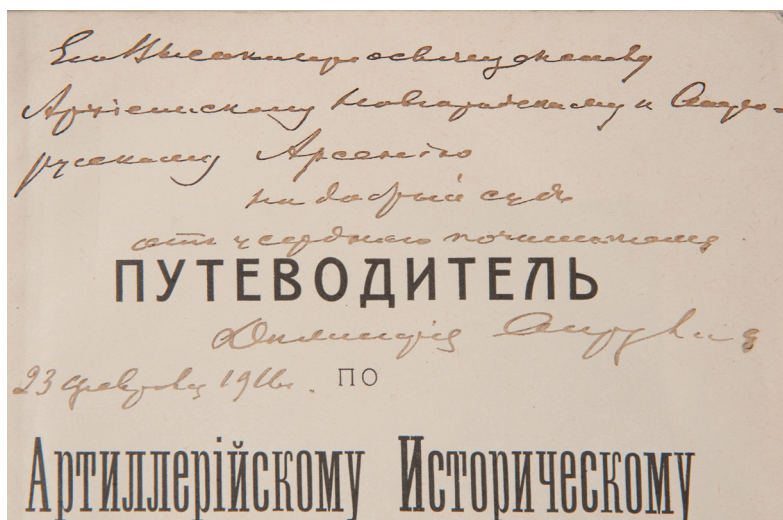 Его Высокопреосвященству
Архіепископу Новгородскому и Старо-
русскому Арсенію
на добрый судъ
отъ усерднаго почитателя
ПУТЕВОДИТЕЛЬ
Димитрія
23 февраля 1916г. ПО
Артиллерійскому Историческому